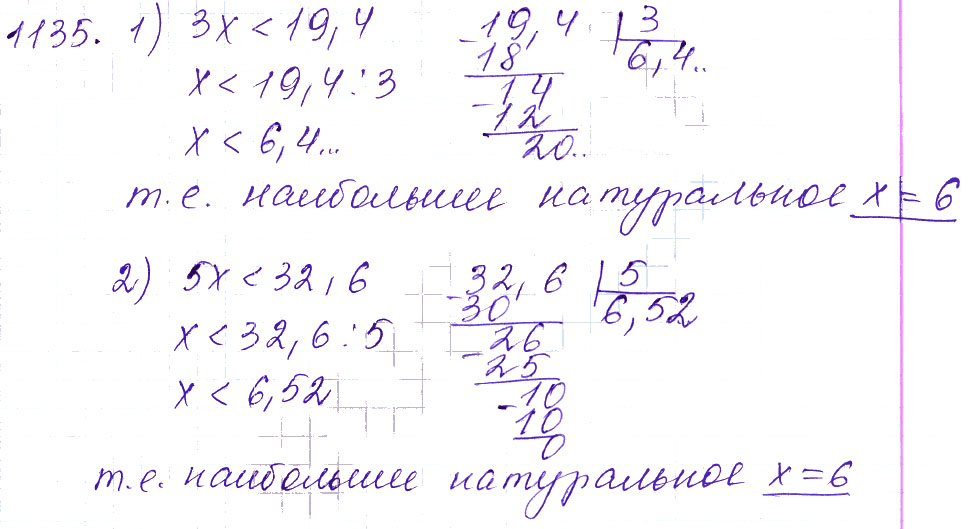 1135. 1) 3x < 19,4
x < 19,4 : 3
x < 6,4...
- 19,4 | 3
18 6,4..
- 14
12
20..
т.е. наибольшее натуральное x = 6
2) 5x < 32,6
x < 32,6 : 5
x < 6,52
- 32,6 | 5
30 6,52
- 26
25
- 10
10
0
т.е. наибольшее натуральное x = 6